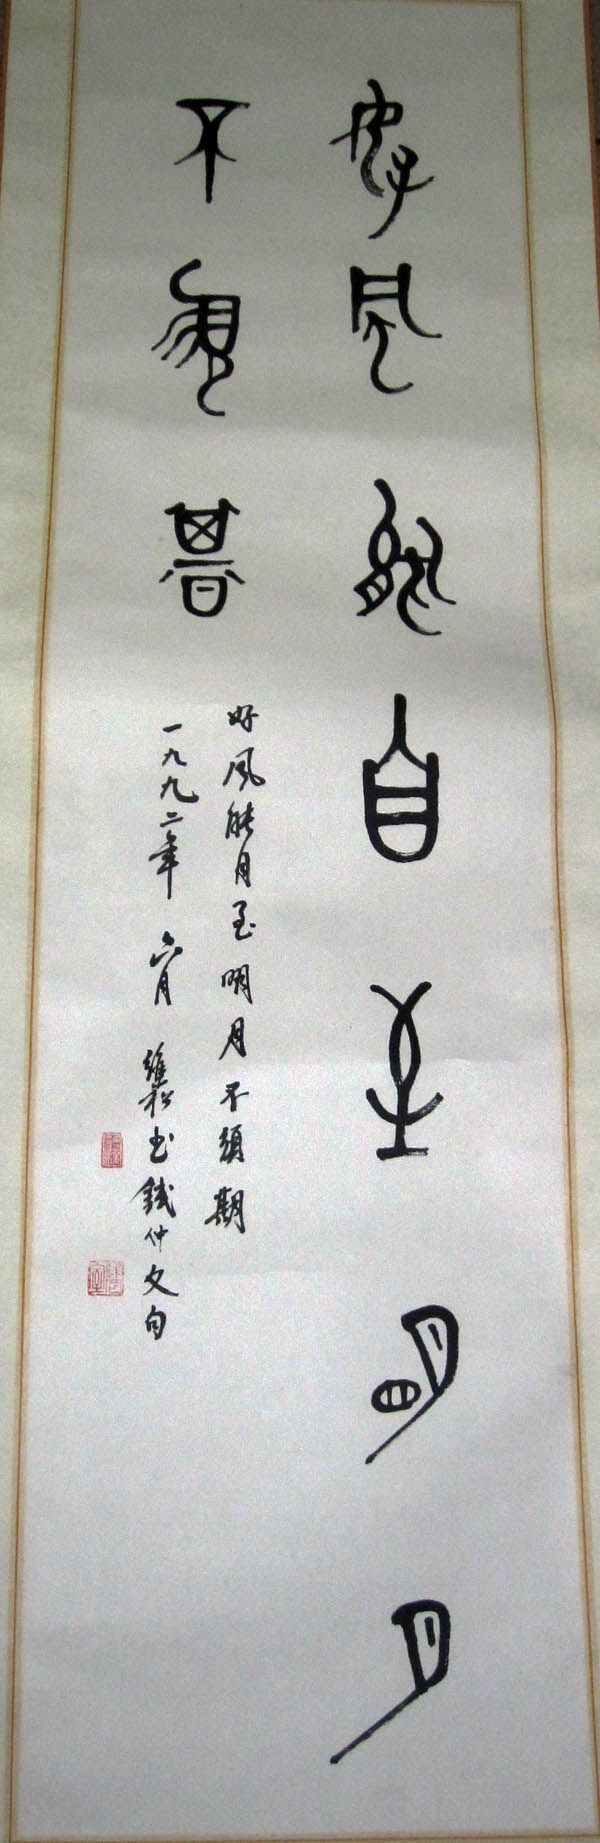 好風能自至明月
不須期
好風能自至明月不須期
一九九二年 六月 維松書錢仲文句